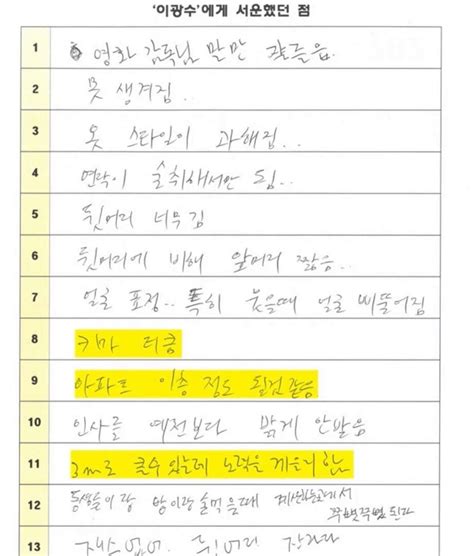 '이광수'에게 서운했던 점
1 영화 감독님 말만 잘들음.
2 못 생겨짐..
3 옷 스타일이 과해짐...
4 연락이 술취해서만 됨..
5 뒷머리 너무 김
6 뒷머리에 비해 앞머리 짧음..
7 얼굴 표정.. 특히 웃을때 얼굴 삐뚤어짐
8 키가 더큼
9 아파트 이층 정도 될것같음
10 인사를 예전보다 밝게 안받음
11 3m로 클수 있는데 노력을 게을리 함
12 동생들이랑 형이랑 술먹을때 계산하는데서 쭈볏쭈볏 된다
13 재수없어. 뒷머리